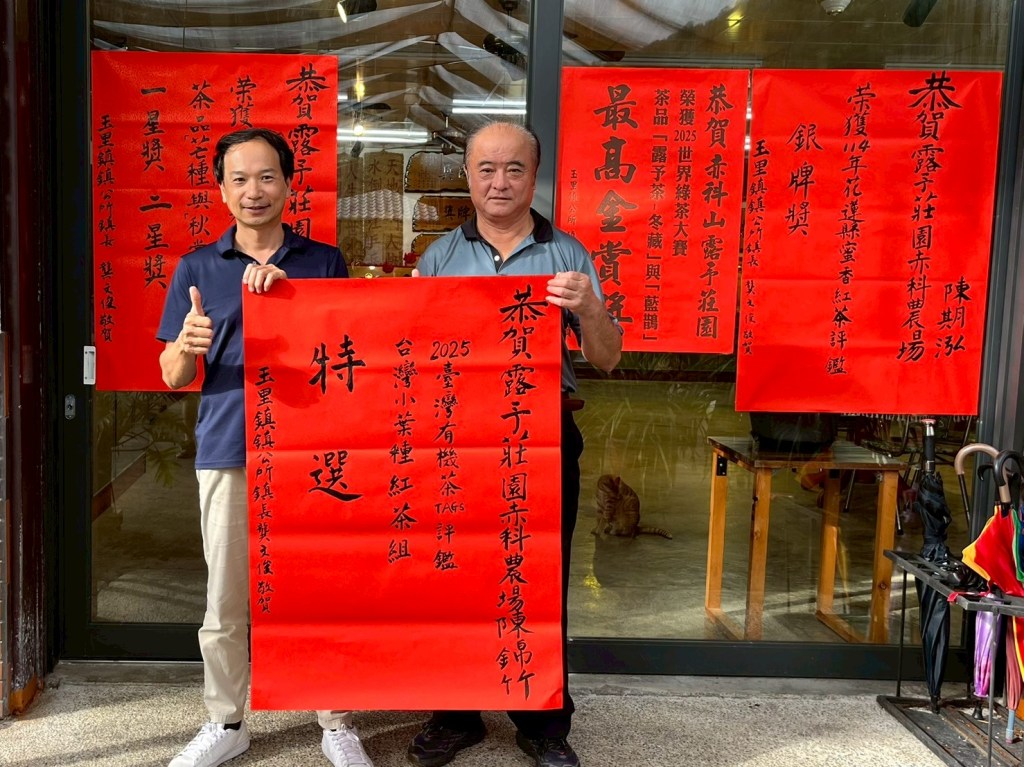 恭賀露予莊園赤科農場陳錦竹
2025臺灣有機茶TAGs評鑑
台灣小葉種紅茶組
特選
玉里鎮鎮公所鎮長龔文俊敬賀
恭賀露予莊園
榮獲
茶品「芒種與秋
一星獎 二星獎
玉里鎮鎮公所鎮長 龔文俊敬賀
恭賀赤科山露予莊園
榮獲2025世界綠茶大賽
茶品「露予茶-冬藏」與「藍鵲」
最高金賞獎
玉里鎮
恭賀露予莊園赤科農場
陳期泓
榮獲114年花蓮縣蜜香紅茶評鑑
銀牌獎
玉里鎮鎮公所鎮長 龔文俊敬賀